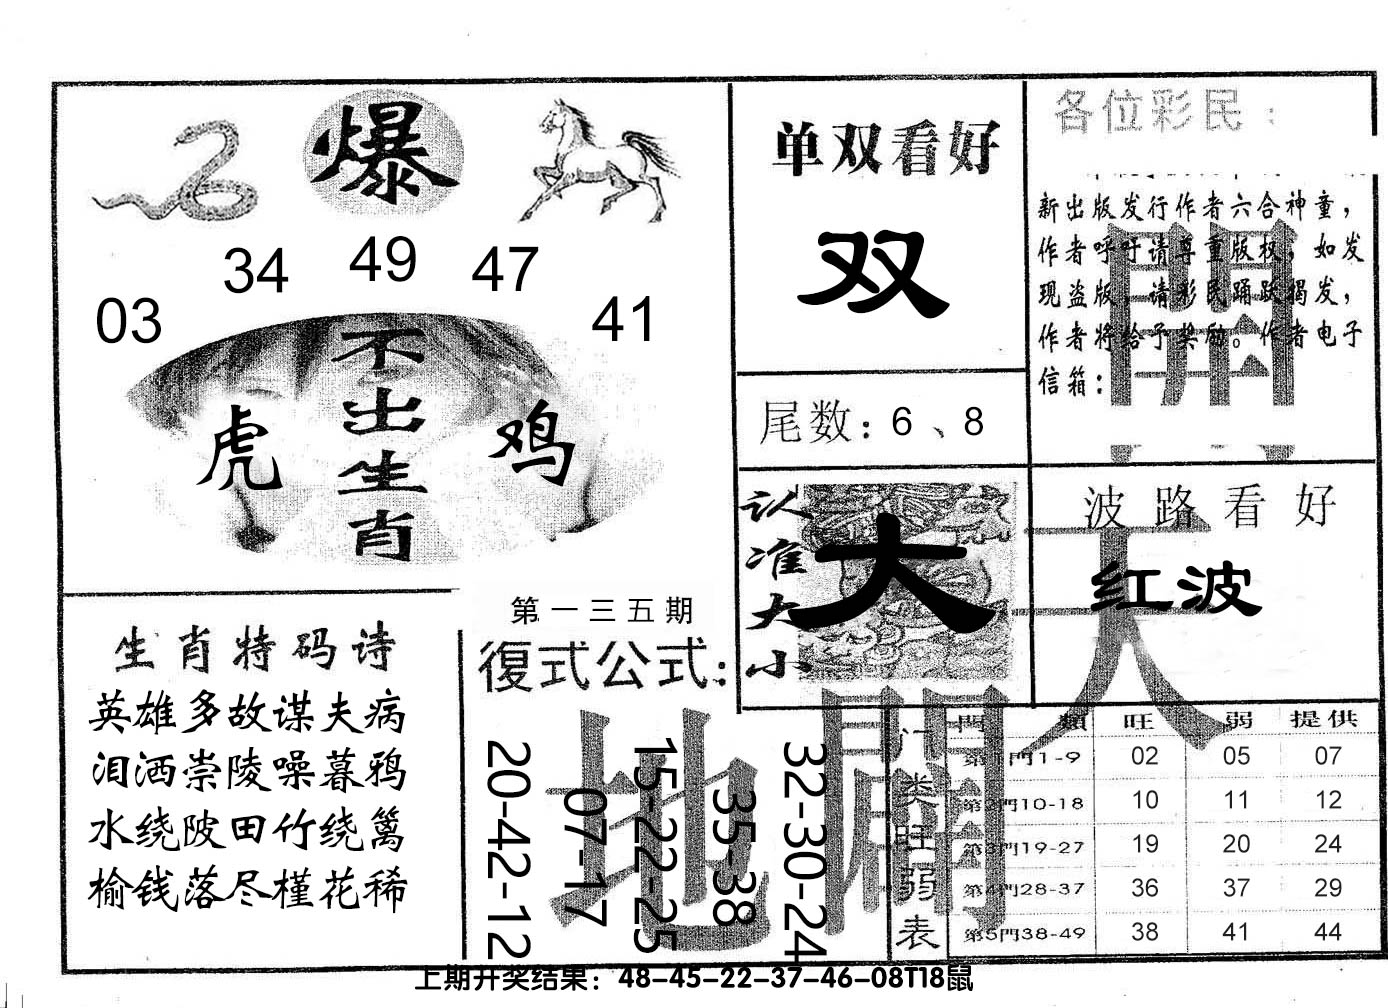 爆
34 49 47
03 41
不出生肖
虎 鸡
单双看好
双
尾数：6、8
各位彩民：
新出版发行作者六合神童，
作者呼吁请尊重版权，如发
现盗版，请彩民踊跃揭发，
作者将给予奖励。作者电子
信箱：
認准大小
大
波路看好
红波
生肖特码诗
英雄多故谋夫病
泪洒崇陵噪暮鸦
水绕陂田竹绕篱
榆钱落尽槿花稀
第一三五期
復式公式：
20-42-12
07-17
15-22-25
35-38
32-30-24
天開
地闢
门类旺弱表
門類 旺 弱 提供
第1門1-9 02 05 07
第2門10-18 10 11 12
第3門19-27 19 20 24
第4門28-37 36 37 29
第5門38-49 38 41 44
上期开奖结果：48-45-22-37-46-08T18鼠